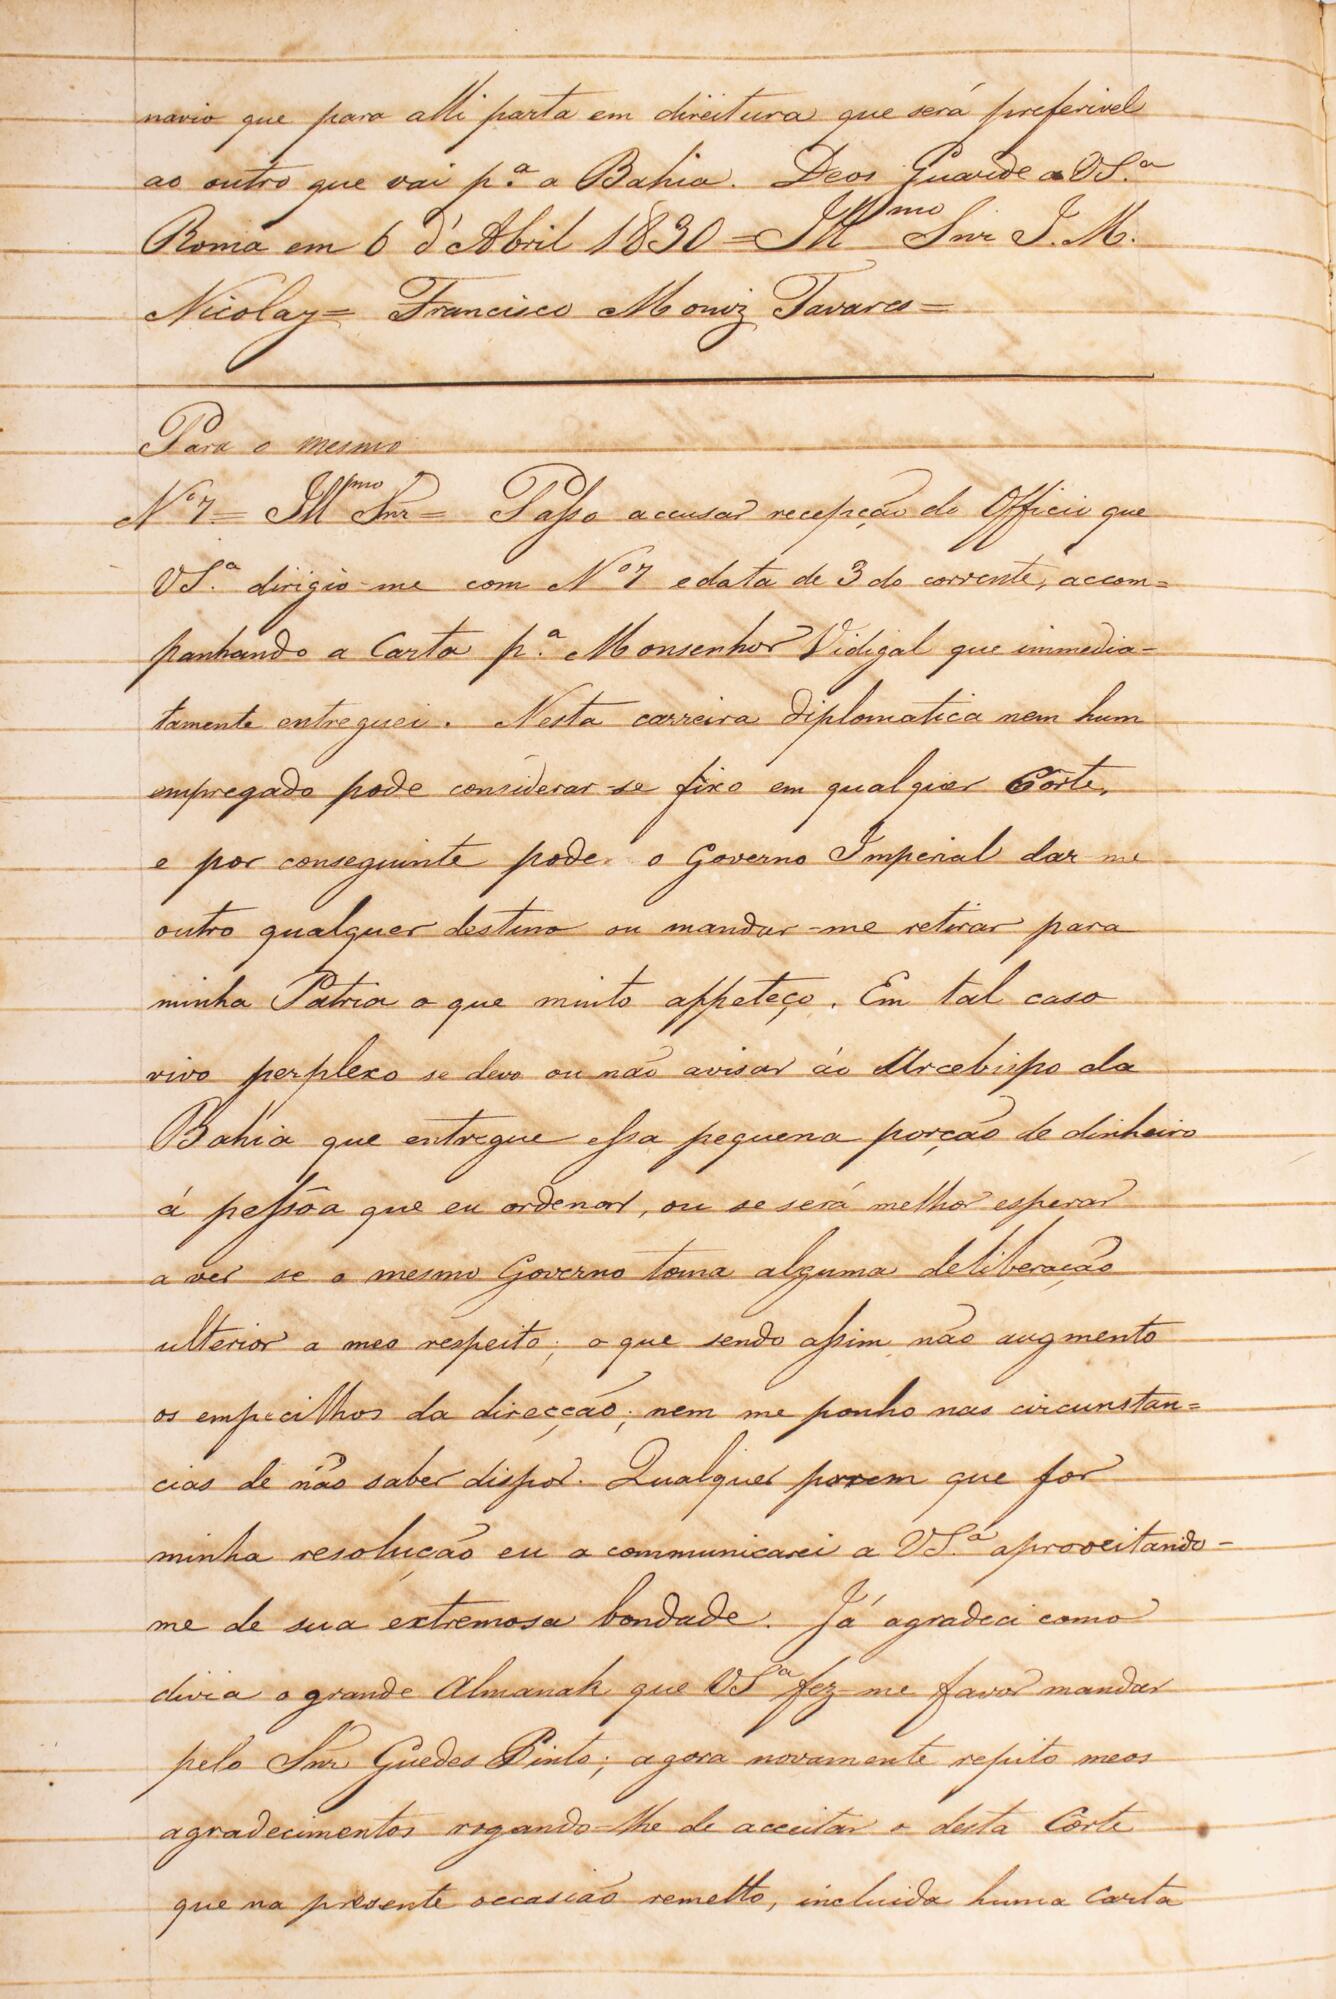 navio que para alli parta em direitura que será preferivel
ao outro que vai p.ª a Bahia. Deos Guarde a VS.ª
Roma em 6 d'Abril 1830 = Illmo Snr I. M.
Nicolay = Francisco Moniz Tavares =
Para o mesmo
Nº 7 = Illmo Snr = Passo accusar recepção do Officio que
VS.ª dirigio-me com Nº 7 e data de 3 do corrente, accom=
panhando a Carta p.ª Monsenhor Vidigal que immedia-
tamente entreguei. Nesta carreira diplomatica nem hum
empregado pode considerar-se fixo em qualquer Côrte,
e por conseguinte pode o Governo Imperial dar-me
outro qualquer destino ou mandar-me retirar para
minha Patria o que muito appeteço. Em tal caso
vivo perplexo se devo ou não avisar áo Arcebispo da
Bahia que entregue essa pequena porção de dinheiro
á pessôa que eu ordenar, ou se será melhor esperar
a ver se o mesmo Governo toma alguma deliberação
ulterior a meo respeito; o que sendo assim não augmento
os empecilhos da direcção; nem me ponho nas circunstan=
cias de não saber dispor. Qualquer porem que for
minha resolução eu a communicarei a VS.ª aproveitando-
me de sua extremosa bondade. Já agradeci como
divia o grande Almanak que VSª fez-me favor mandar
pelo Snr Guedes Pinto; agora novamente repito meos
agradecimentos rogando-lhe de acceitar o desta Côrte
que na presente occasião remetto, incluida huma carta